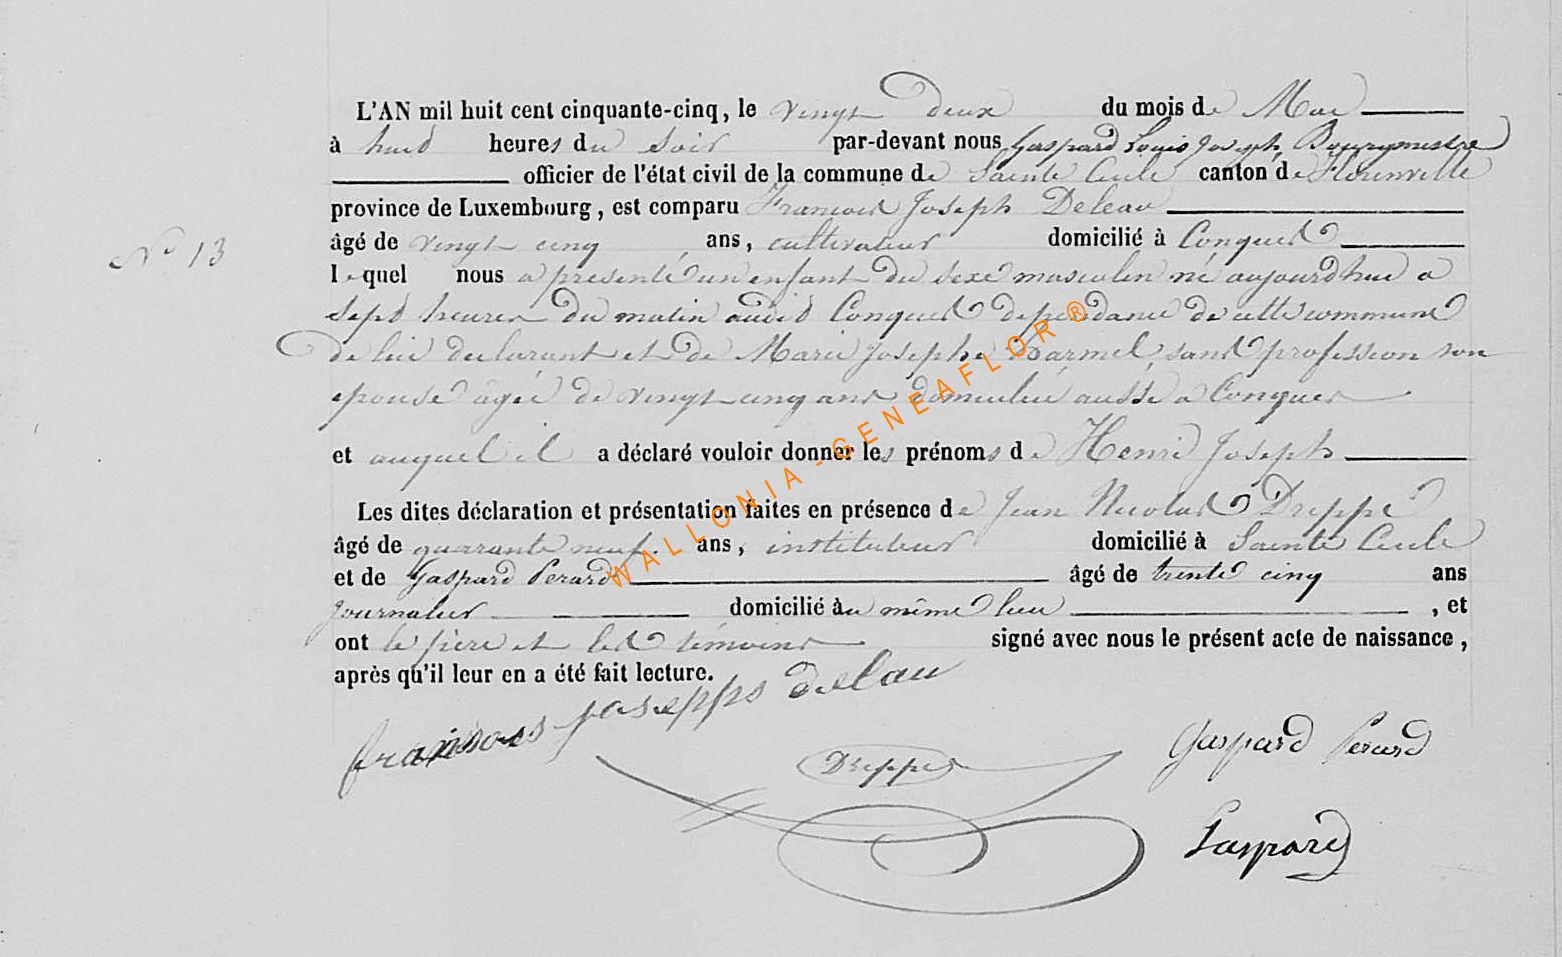 L'AN mil huit cent cinquante-cinq, le vingt deux du mois de Mai
à huit heures du soir par-devant nous Gaspard Louis Joseph, Bourgmestre
officier de l'état civil de la commune de Sainte Cecile canton de Florenville
province de Luxembourg, est comparu Francois Joseph Deleau
N° 13
âgé de vingt cinq ans, cultivateur domicilié à Conques
lequel nous a présenté un enfant du sexe masculin né aujourdhui a
sept heures du matin audit Conques dependance de cette commune
de lui declarant et de Marie Josephe sans profession son
epouse âgée de vingt cinq ans domiciliée aussi a Conques
et auquel il a déclaré vouloir donner les prénoms de Henri Joseph
Les dites déclaration et présentation faites en présence de Jean Nicolas Dreppe
âgé de quarante neuf ans, instituteur domicilié à Sainte Cecile
et de Gaspard Perard âgé de trente cinq ans
journalier domicilié au même lieu, et
ont le père et les témoins signé avec nous le présent acte de naissance,
après qu'il leur en a été fait lecture.
fransois josepps delau
Dreppe
Gaspard Perard
Gaspard
WALLONIA-GENEAFLOR ®